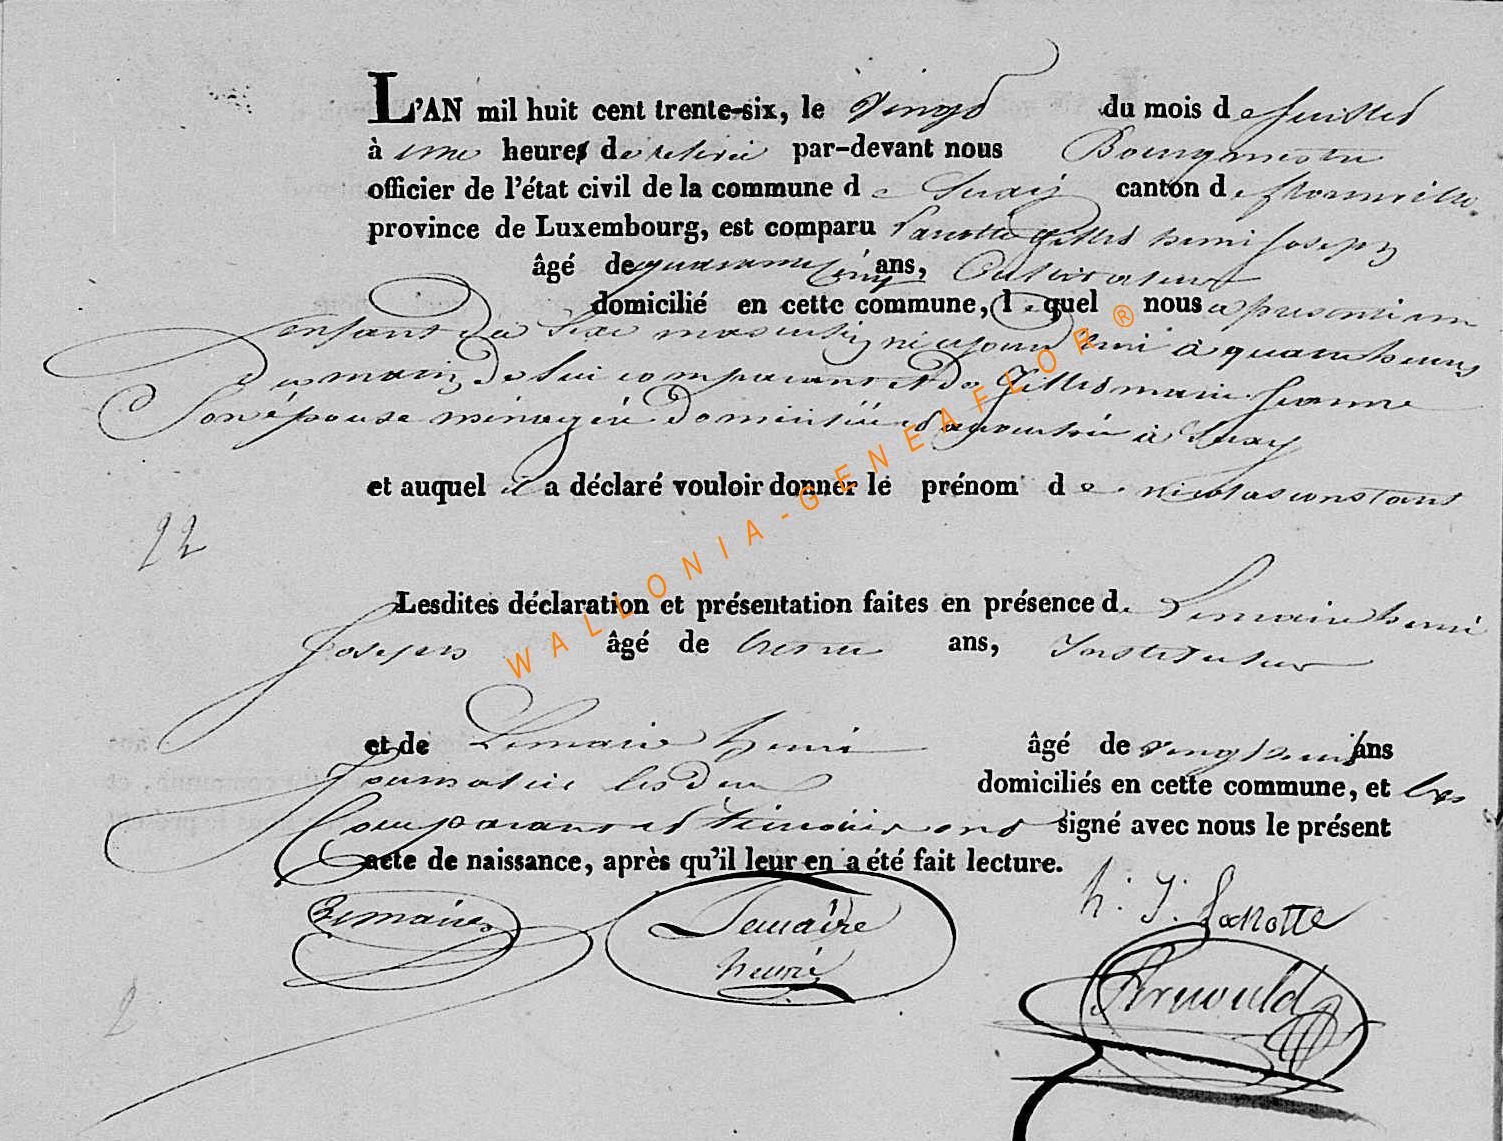 L'AN mil huit cent trente-six, le vingt du mois de juillet
à une heure de relevée par-devant nous Bourgmestre
officier de l'état civil de la commune de Suxy canton de florenville
province de Luxembourg, est comparu Lanotte gilles henri Joseph
âgé de quarante cinq ans, Cultivateur
domicilié en cette commune, lequel nous a presenté un
enfant du Sexe masculin, né aujourd'hui à quatre heures
du matin, de lui comparant et de Gilles marie Jeanne
Son épouse ménagère domiciliée à Suxy
et auquel il a déclaré vouloir donner le prénom de nicolas constant
22
Lesdites déclaration et présentation faites en présence de Lemaire henri
Joseph âgé de trente ans, Instituteur
et de Lemaire henri âgé de vingt huit ans
Journalier les deux domiciliés en cette commune, et les
Comparant et témoins ont signé avec nous le présent
acte de naissance, après qu'il leur en a été fait lecture.
Lemaire
Lemaire
henri
h. J. Lanotte
Arnould
2
WALLONIA-GENEAFLOR ®